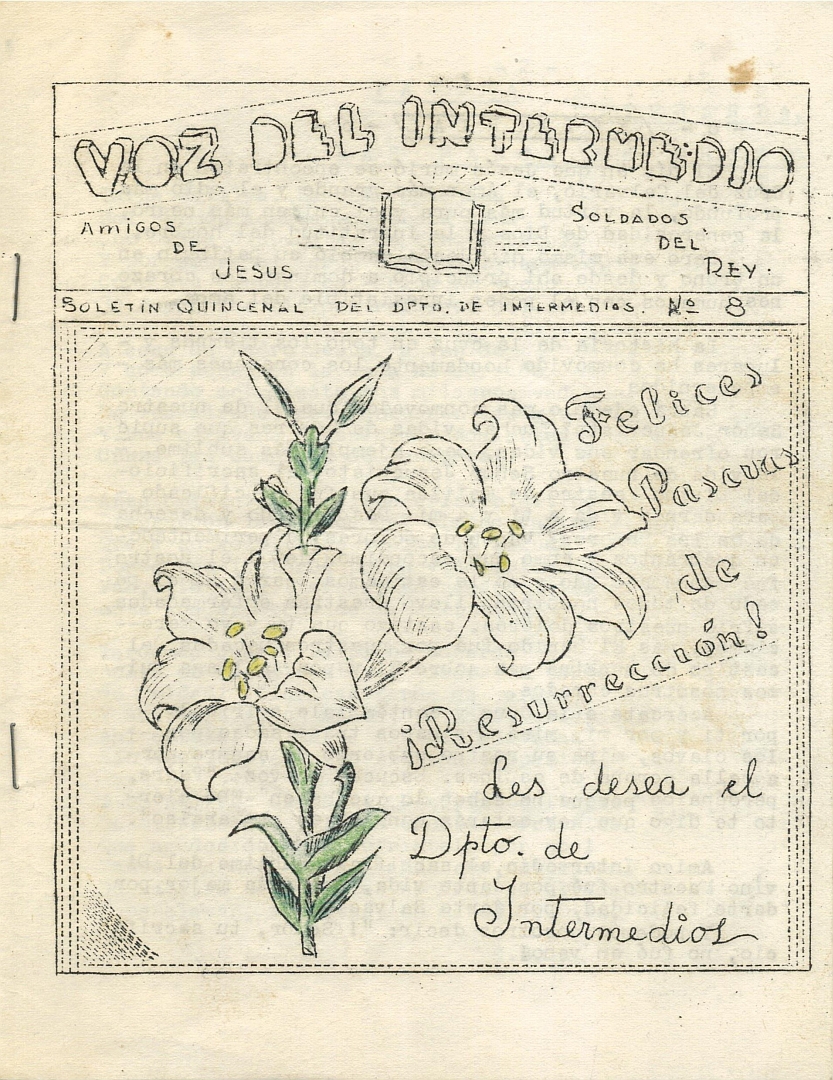 VOZ DEL INTERMEDIO
AMIGOS
DE
JESUS
SOLDADOS
DEL
REY.
BOLETIN QUINCENAL DEL DPTO. DE INTERMEDIOS. Nº 8
Felices
Pascuas
de
¡Resurrección!
Les desea el
Dpto. de
Intermedios